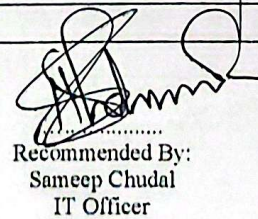 Recommended By:
Sameep Chudal
IT Officer